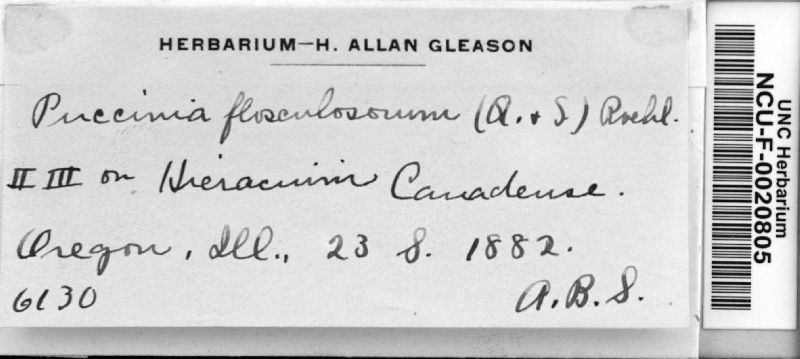 HERBARIUM—H. ALLAN GLEASON
Puccinia flosculosorum (A. & S.) Roehl.
II III on Hieracium Canadense.
Oregon, Ill., 23 S. 1882.
6130
A.B.S.
UNC Herbarium
NCU-F-0020805